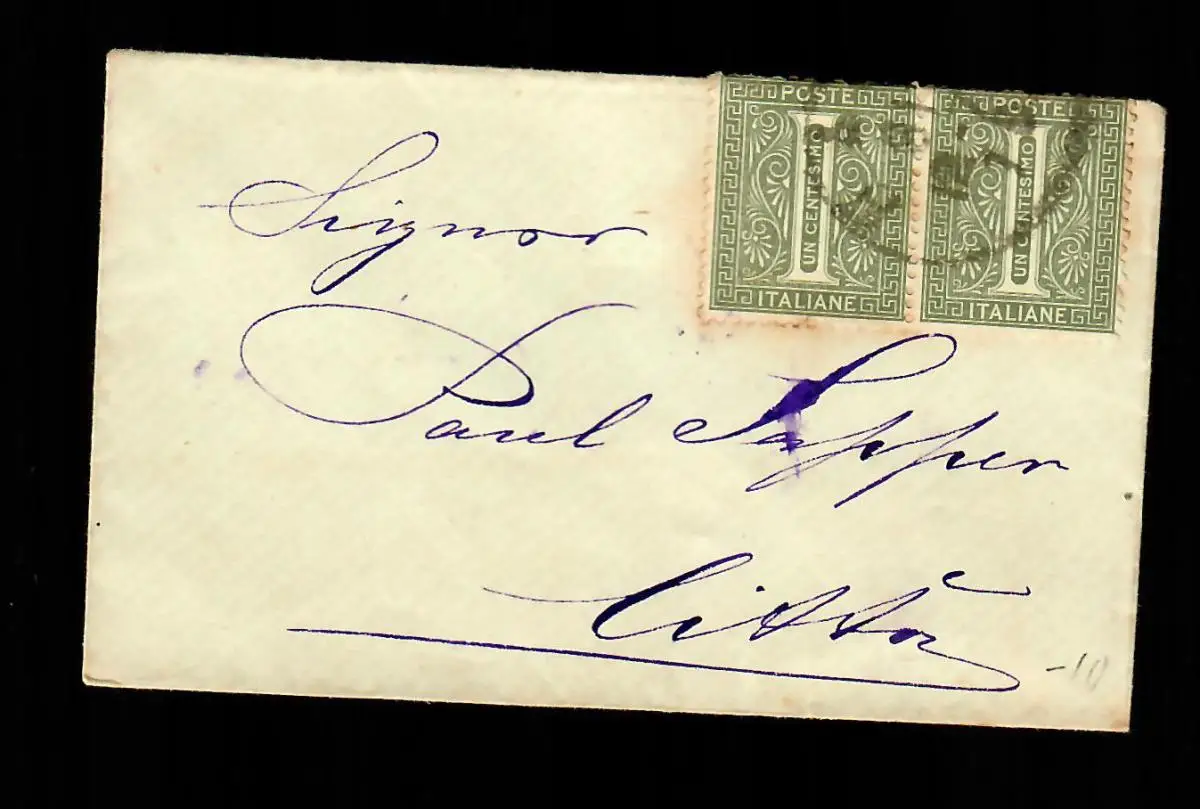 POSTE POSTE
UN CENTESIMO UN CENTESIMO
1 1
ITALIANE ITALIANE
Signor
Paul Sapper
Città
-10